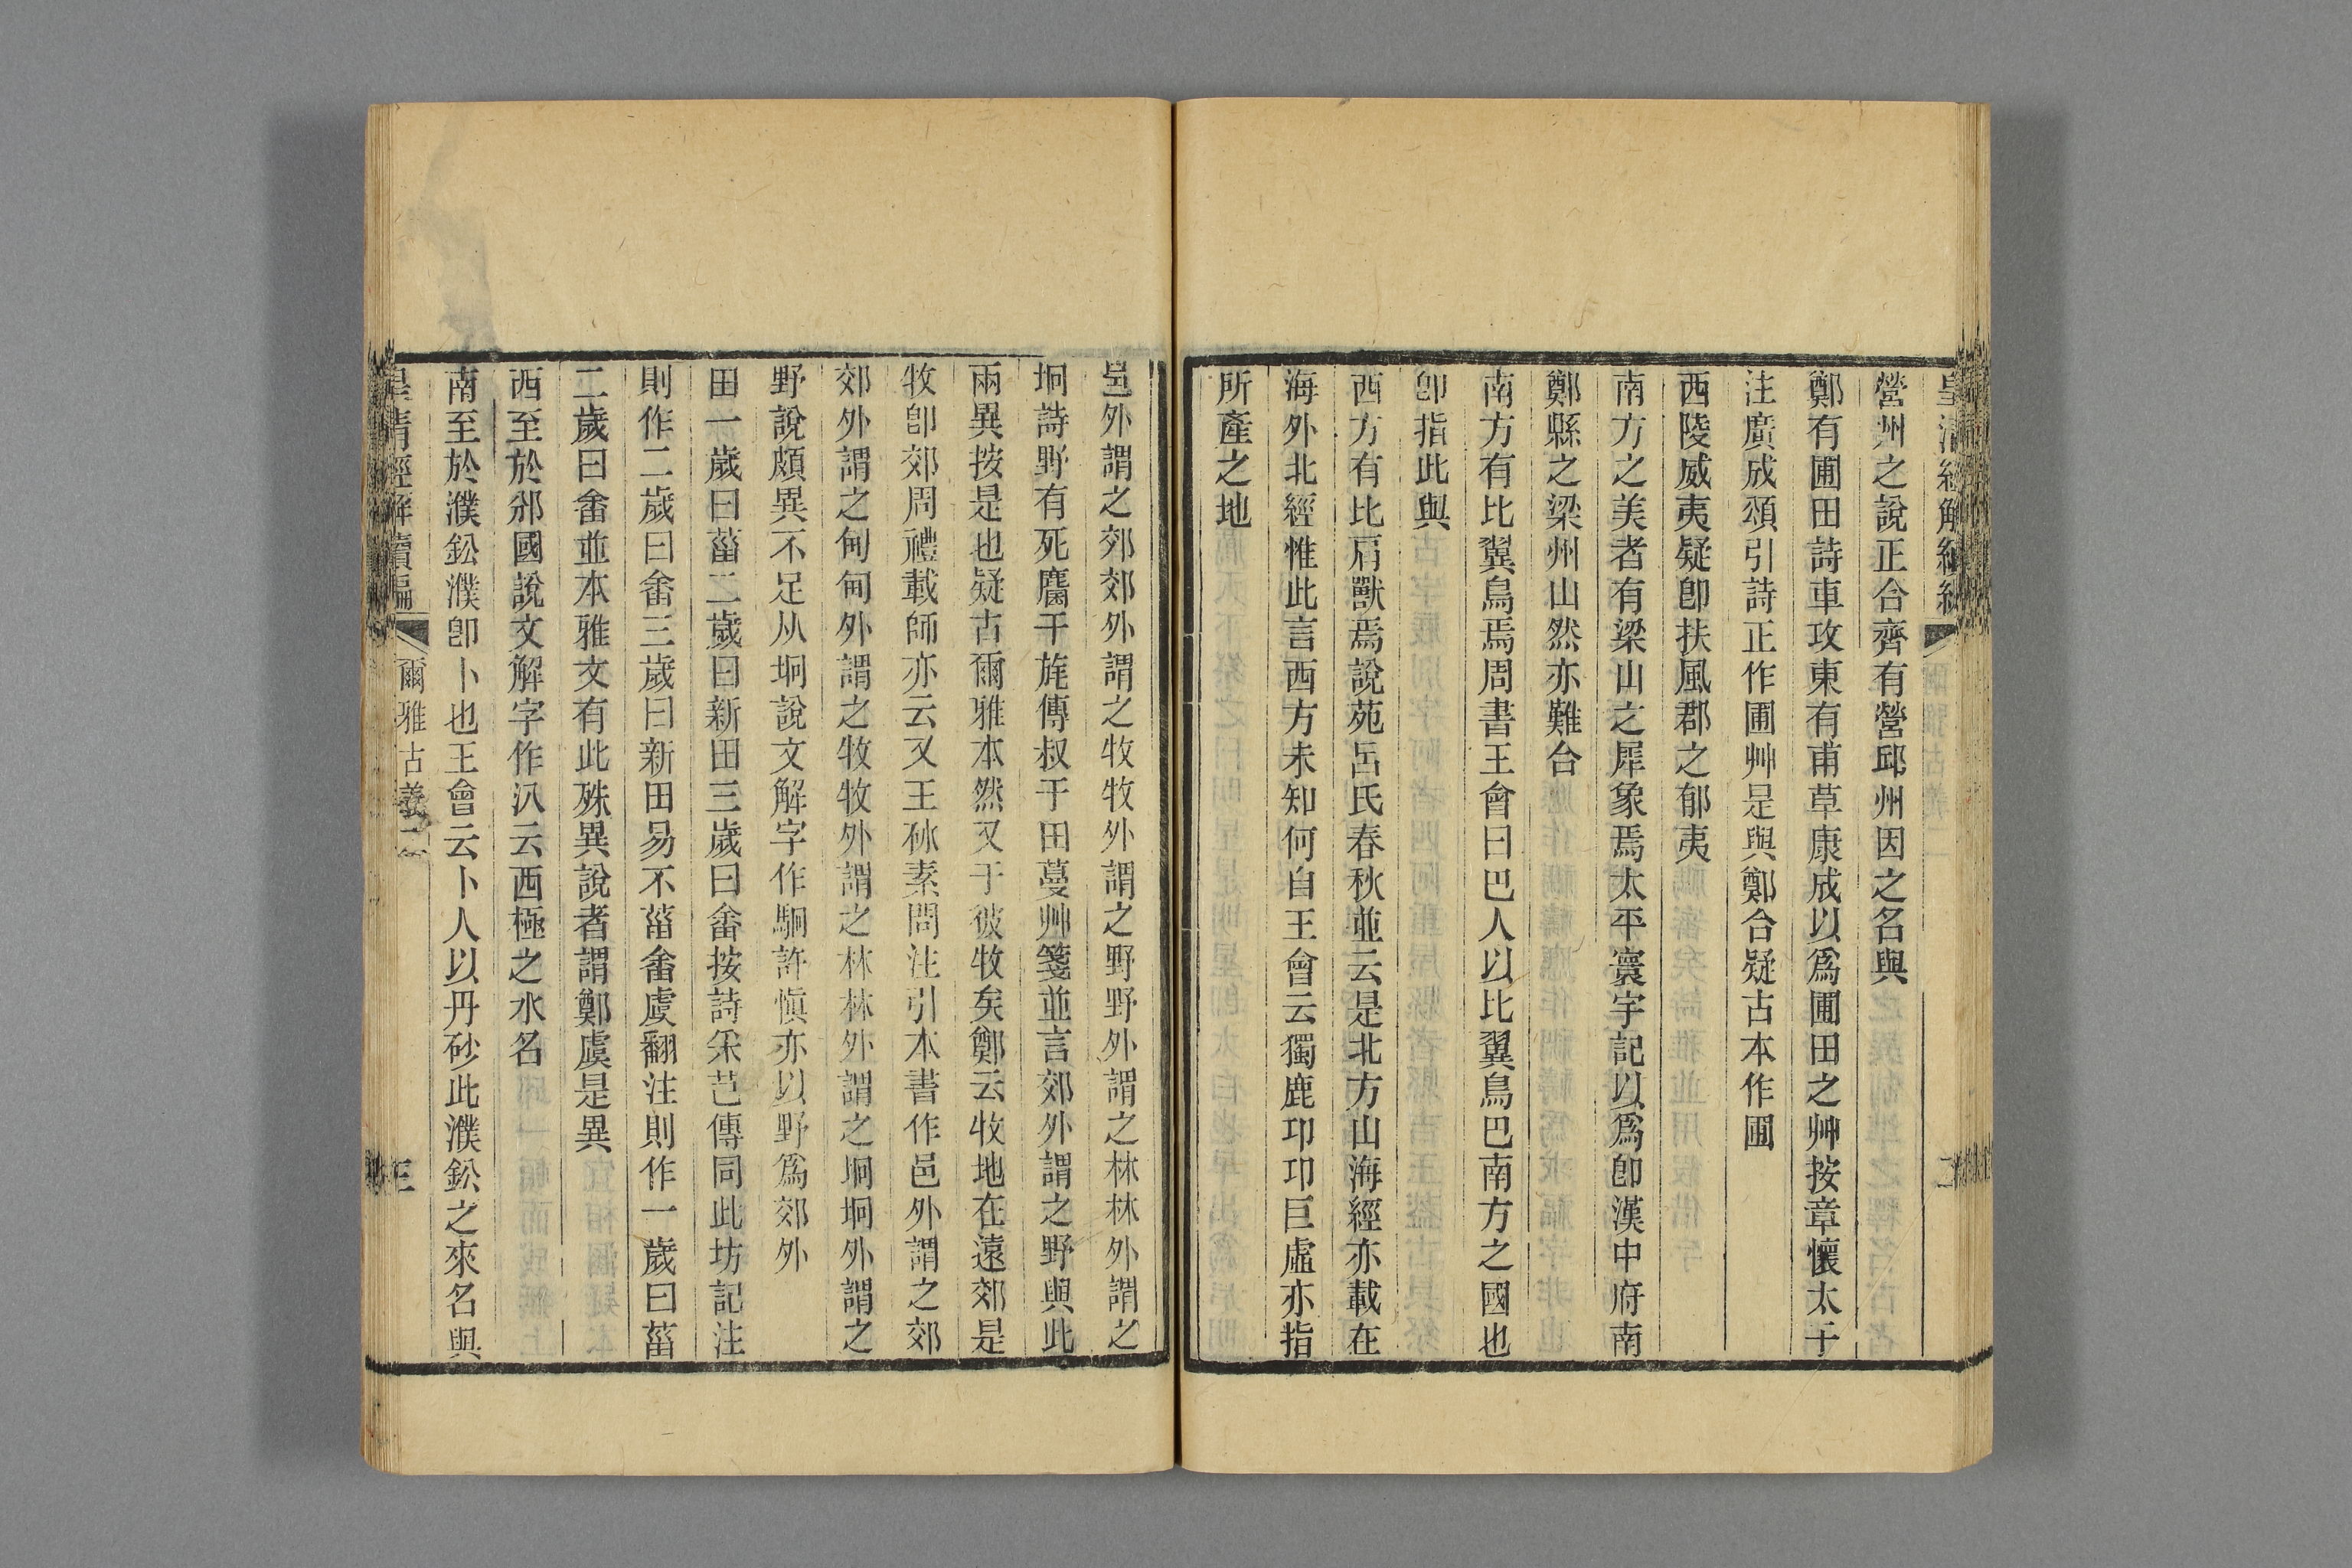 營州之說正合齊有營邱州因之名與
鄭有圃田詩車攻東有甫草康成以爲圃田之艸按章懷太子
注廣成頌引詩正作圃艸是與鄭合疑古本作圃
西陵威夷疑卽扶風郡之郁夷
南方之美者有梁山之犀象焉太平寰宇記以爲卽漢中府南
鄭縣之梁州山然亦難合
南方有比翼鳥焉周書王會曰巴人以比翼鳥巴南方之國也
卽指此與
西方有比肩獸焉說苑呂氏春秋並云是北方山海經亦載在
海外北經惟此言西方未知何自王會云獨鹿卭卭巨虛亦指
所產之地
邑外謂之郊郊外謂之牧牧外謂之野野外謂之林林外謂之
坰詩野有死麕干旄傳叔于田蔓艸箋並言郊外謂之野與此
兩異按是也疑古爾雅本然又于彼牧矣鄭云牧地在遠郊是
牧卽郊周禮載師亦云又王砅素問注引本書作邑外謂之郊
郊外謂之甸甸外謂之牧牧外謂之林林外謂之坰坰外謂之
野說頗異不足从坰說文解字作駉許愼亦以野爲郊外
田一歲曰菑二歲曰新田三歲曰畬按詩采芑傳同此坊記注
則作二歲曰畬三歲曰新田易不菑畬虞翻注則作一歲曰菑
二歲曰畬並本雅文有此殊異說者謂鄭虞是異
西至於邠國說文解字作汃云西極之水名
南至於濮鈆濮卽卜也王會云卜人以丹砂此濮鈆之來名與
皇清經解續編 爾雅古義二 三